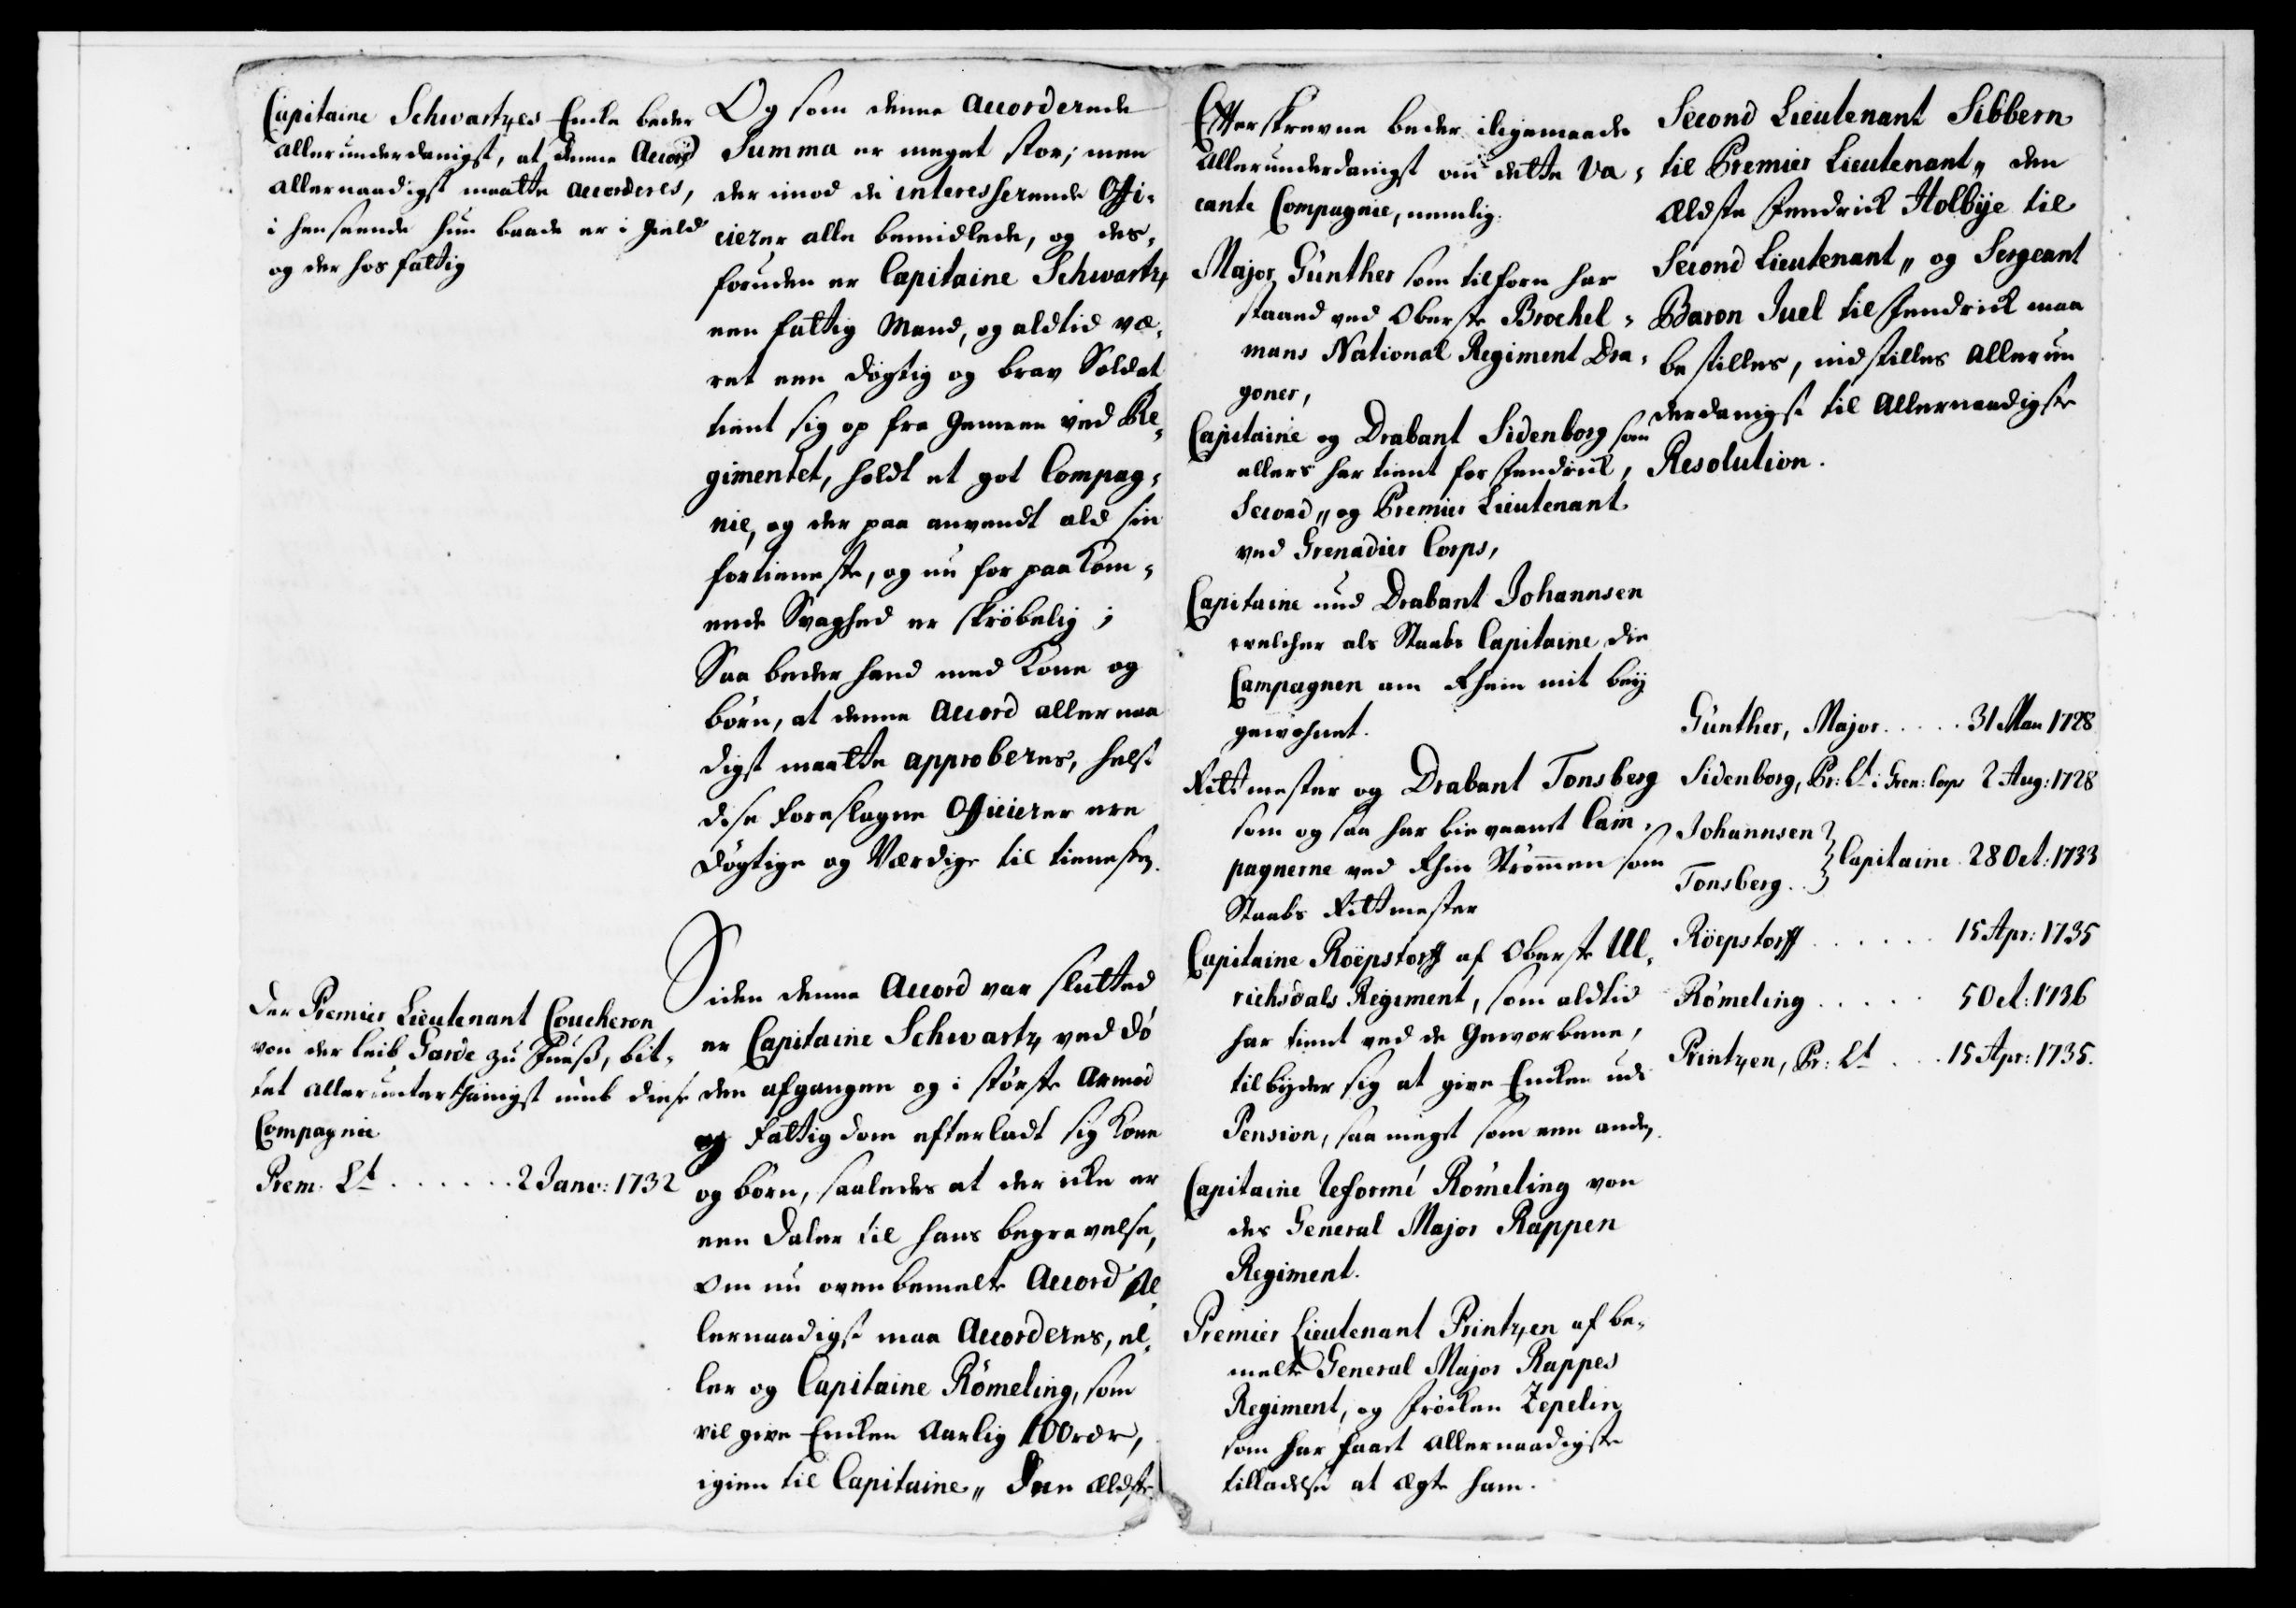 Capitaine Schwartzes Encke beder
allerunderdanigst, at denne Accord
allernaadigst maatte accorderes,
i henseende hun baade er i gield
og der hos fattig
Der Premier Lieutenant Coucheron
von der Leib Garde zu Fuuß, bit-
tet allerunterthänigst umb diese
Compagnie
Prem: Lt ...... 2 Janv: 1732
Og som denne accorderede
Summa er meget stor; men
der imod de interesserende Offi-
cierer alle bemidlede, og des-
foruden er Capitaine Schwartz
een fattig Mand, og aldtid væ-
ret een døgtig og brav Soldat
tient sig op fra gemeen ved Re-
gimentet, holdt et got Compag-
nie, og der paa anvendt ald sin
fortieneste, og nu for paakom-
ende Svaghed er skrøbelig;
Saa beder hand med Kone og
børn, at denne Accord allernaa
digst maatte approberes, helst
dise foreslagne Officierer ere
døgtige og Værdige til tienesten.
Siden denne Accord var slutted
er Capitaine Schwartz ved dö
den afgangen og i störste armod
og fattigdom efterladt sig Kone
og børn, saaledes at der icke er
een daler til hans begravelse,
Om nu ovenbemelte Accord Al-
lernaadigst maa Accorderes, el-
ler og Capitaine Römeling, som
vil give Encken Aarlig 100 rdr,
igien til Capitaine„ Den ældste
Efterskrevne beder iligemaade
Allerunderdanigst om dette va-
cante Compagnie, nemlig:
Major Günther som tilforn har
staaed ved Oberste Brochel-
mans National Regiment Dra-
goner,
Capitaine og Drabant Sidenborg som
ellers har tient for Fendrick,
Second„ og Premier Lieutenant
ved Grenadier Corps,
Capitaine und Drabant Johannsen
welcher als Staabs Capitaine die
Campagnen am Rhein mit beÿ
gewohnet.
Rittmester og Drabant Tonsberg
som og saa har bievaanet Cam-
pagnerne ved Rhin Strömmen som
Staabs Rittmester
Capitaine Röepstorff af Oberste Ul-
richsdals Regiment, som aldtid
har tient ved de Geworbene,
tilbyder sig at give Encken udi
Pension, saa meget som een anden.
Capitaine Reformé Römeling von
des General Major Rappen
Regiment.
Premier Lieutenant Printzen af be-
melte General Major Rappes
Regiment, og Fröcken Zepelin
som har faaet allernaadigste
tilladelse at ægte ham.
Second Lieutenant Sibbern
til Premier Lieutenant„ den
ældste Fendrick Holbÿe til
Second Lieutenant„ og Sergeant
Baron Juel til Fendrick maa
bestilles, indstilles allerun
derdanigst til Allernaadigste
Resolution.
Günther, Major ..... 31 Mau 1728
Sidenborg, Pr: Lt i Gren: Corps 2 Aug: 1728
Johannsen
Tonsberg .. } Capitaine 28 Oct: 1733
Röepstorff ...... 15 Apr: 1735
Römeling ..... 5 Oct: 1736
Printzen, Pr: Lt ... 15 Apr: 1735.